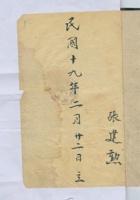 民國十九年二月廿二日立
張建勲